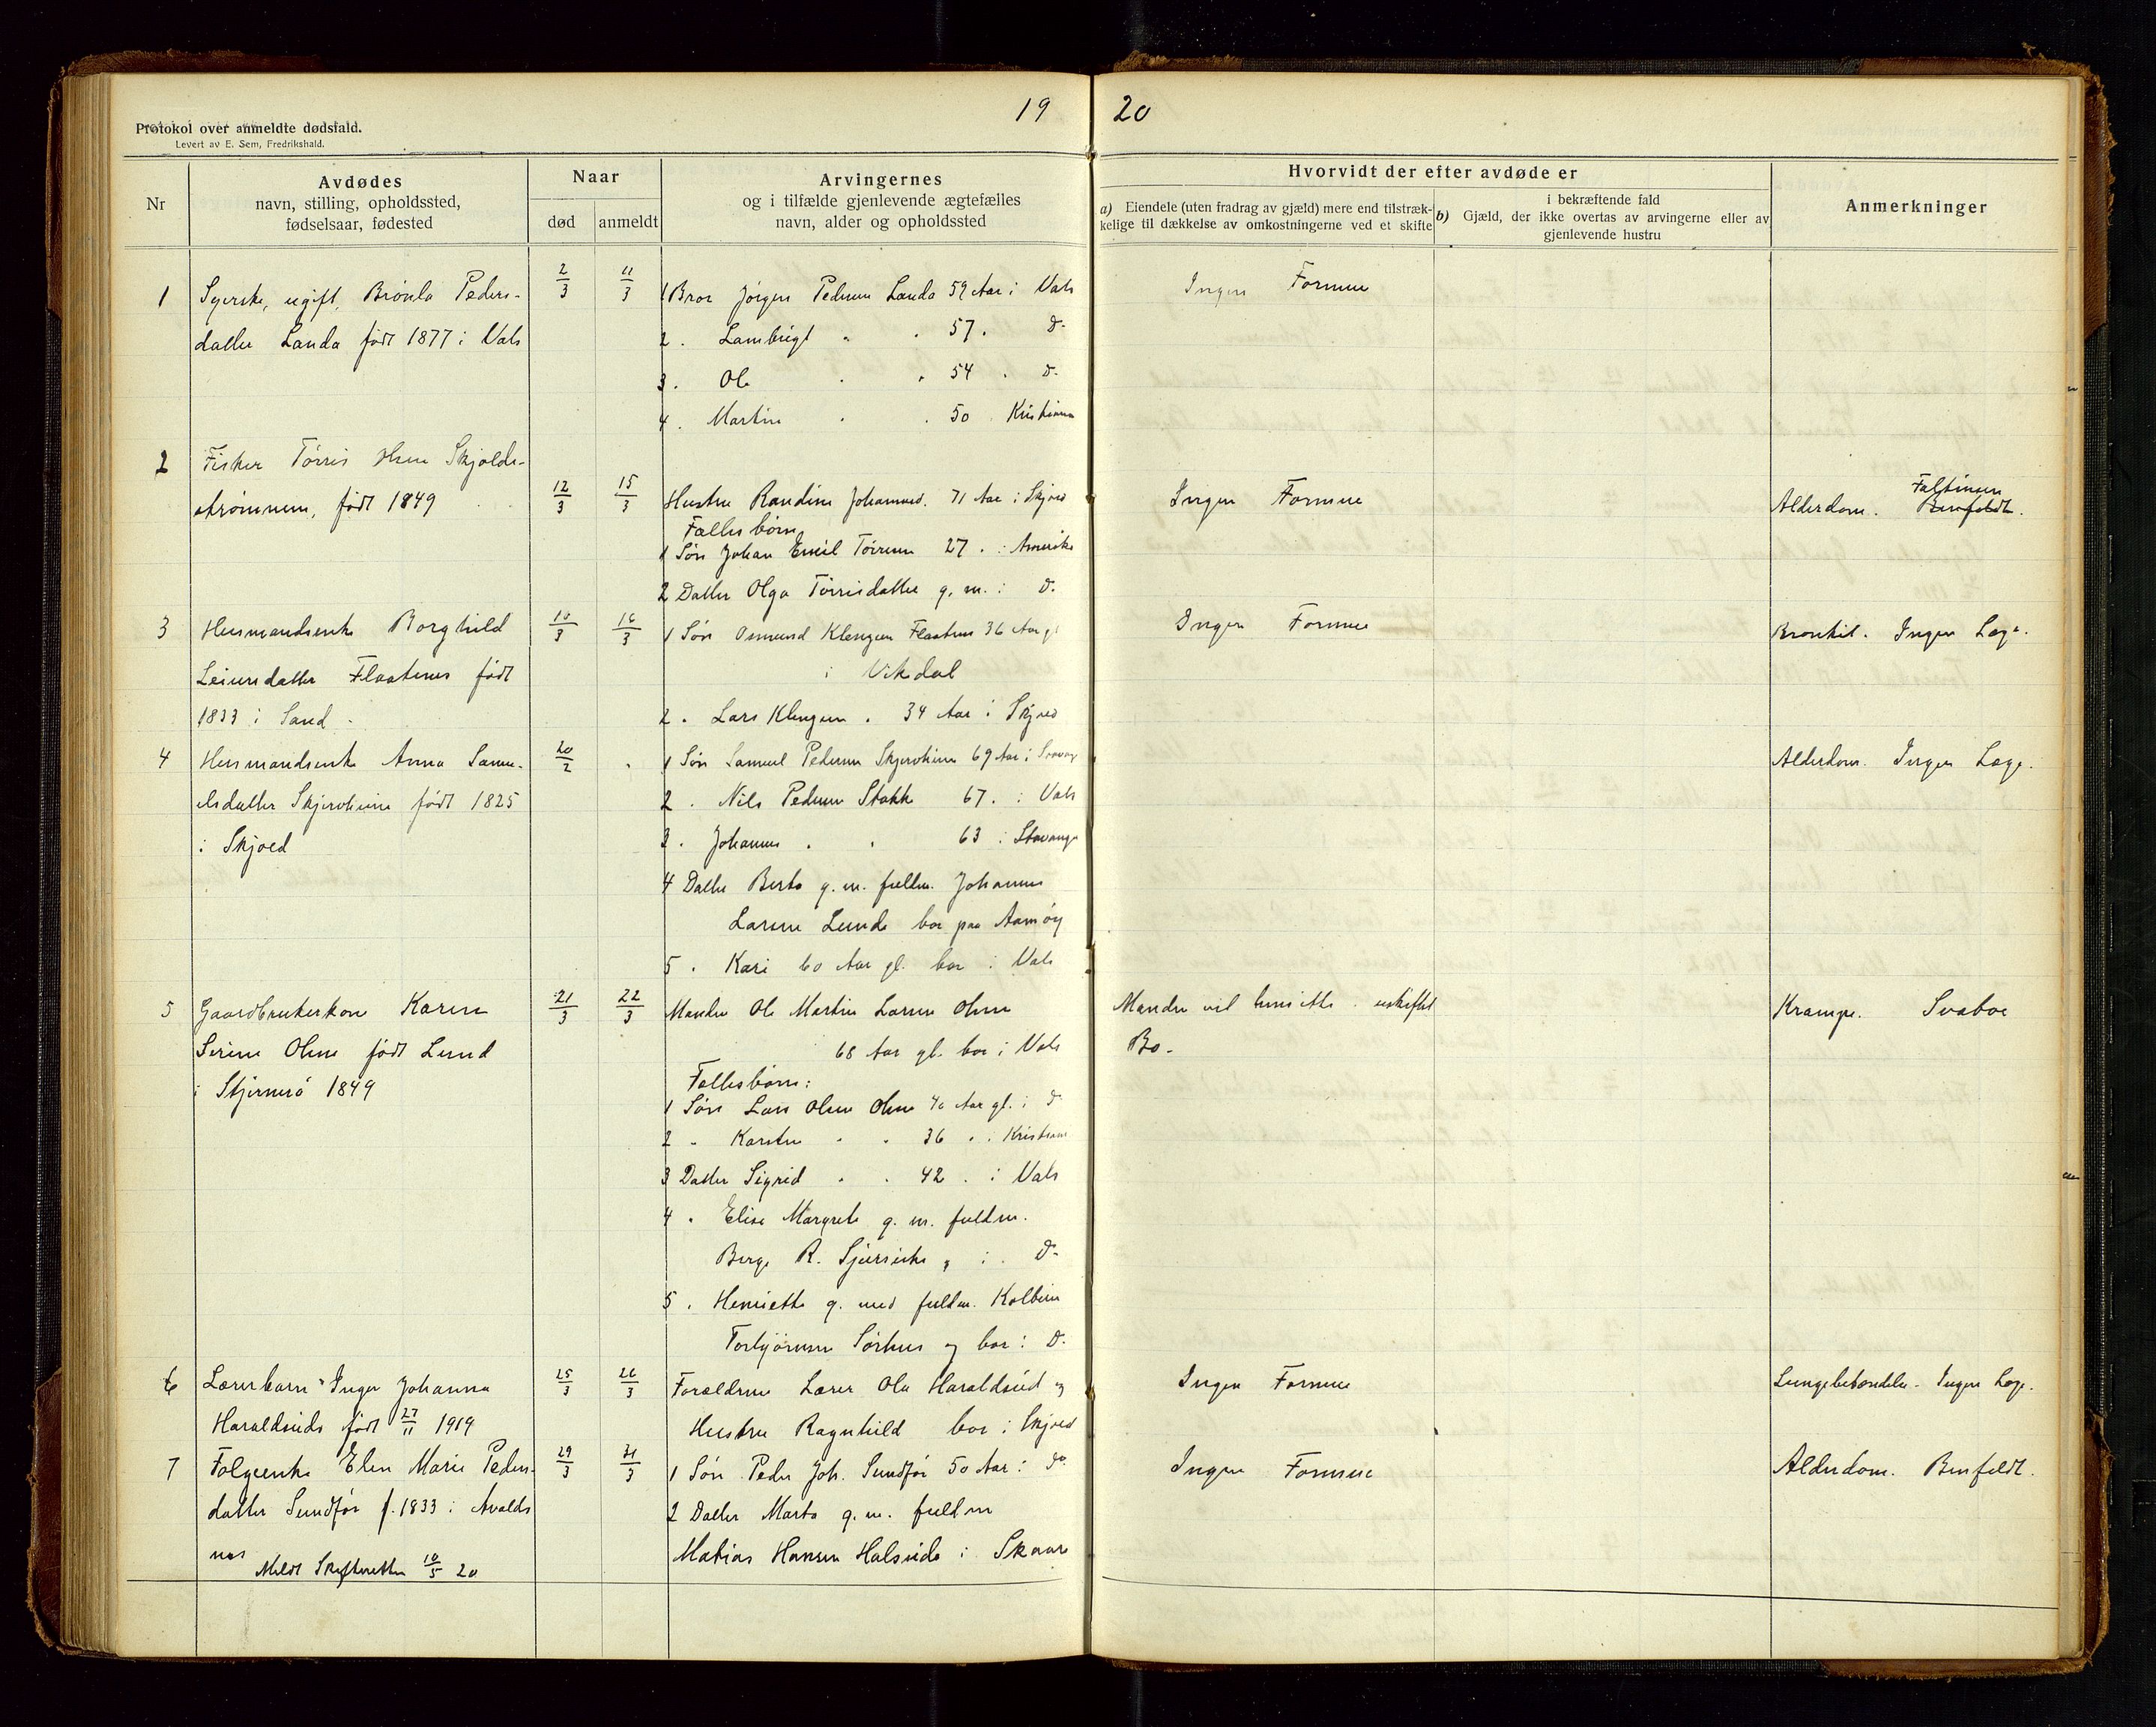 19 20
Protokol over anmeldte dødsfald.
Levert av E. Sem, Fredrikshald.
Nr
Avdødes
navn, stilling, opholdssted,
fødselsaar, fødested
Naar
død
anmeldt
Arvingernes
og i tilfælde gjenlevende ægtefælles
navn, alder og opholdssted
Hvorvidt der efter avdøde er
a) Eiendele (uten fradrag av gjæld) mere end tilstræk-
kelige til dækkelse av omkostningerne ved et skifte
i bekræftende fald
b) Gjæld, der ikke overtas av arvingerne eller av
gjenlevende hustru
Anmerkninger
1 Syerske, ugift, Brønla Peders-
datter Landa født 1877 i Vats
2/3 11/3
1 Bror Jörgen Pedersen Landa 59 Aar i Vats
2 . Lambrigt " . 57 . d-
3 . Ole . . 54 . d-
4 . Martin . . 50 . Kristiania
Ingen Formue
2 Fisker Törris Olsen Skjolds-
strømmen, født 1849
12/3 15/3
Hustru Randine Johannesd. 71 Aar i Skjold
Fællesbörn
1 Sön Johan Emil Törresen 27 . i Amerika
2 Datter Olga Törrisdatter g. m. i d-
Ingen Formue
Alderdom. Falkinsen
Benfeldt.
3 Husmandsenke Borghild
Leiersdatter Flaatenes født
1833 i Sand -
10/3 16/3
1 Sön Osmund Klengsen Flaatnes 36 Aar gl
i Vikedal
2 . Lars Klengsen . 34 Aar i Skjold
Ingen Formue
Bronkit. Ingen Læge.
4 Husmandsenke Anna Samu-
elsdatter Skjersheim født 1825
i Skjold
20/2 .
1 Sön Samuel Pedersen Skjersheim 69 Aar i Stavang
2 . Nils Pedersen Stakke 67 . i Vats
3 . Johannes . . 63 i Stavange
4 Datter Berta g. m. fuldm. Johannes
Larsen Lunde bor paa Aamöy
5 . Kari 60 Aar gl. bor i Vats
Alderdom. Ingen Læge.
5 Gaardbrukerkone Karen
Serine Olsen født Lund
i Stjernerö 1849
21/3 22/3
Manden Ole Martin Larsen Olsen
68 Aar gl. bor i Vats
Fællesbörn:
1 Sön Lars Olsen Olsen 40 Aar gl. i d-
2 - Karsten - - 36 . i Kristians
3 Datter Sigrid . . 42 . i Vats
4 . Elise Margrete g. m. fuldm.
Berge R. i d-
5 . Henriette g. med fuldm. Kolbein
Torbjörnsen Sörhus og bor i d-
Manden vil hensitte i uskiftet
Bo-
Krampe. Svaboe
6 Lærerbarn Inger Johanna
Haraldseids født 27/11 1919
25/3 26/3
Forældrene Lærer Ola Haraldseid og
Hustru Ragnhild bor i Skjold
Ingen Formue
Lungebetændelse - Ingen Læge.
7 Folgeenke Elen Marie Peders-
datter Sundför f. 1833 i Avalds
nes
29/3 31/3
1 Sön Peder Joh. Sundför 50 Aar i do
2 Datter Marta g. m. fuldm
Matias Hansen Halseide i Skaare
Ingen Formue
Alderdom. Benfeldt.
Meldt Skifteretten 10/5 20